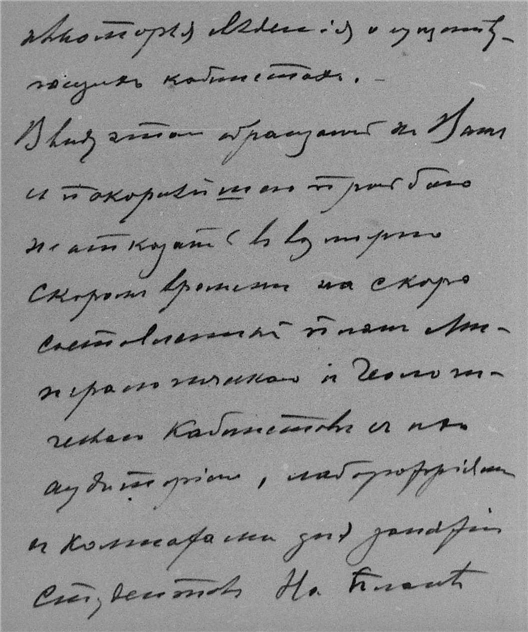 некоторыя сведенія о существу-
ющихъ кабинетахъ. –
Ввиду этого обращаюсь къ Вамъ
съ покорнѣйшею просьбою
не отказать въ
скоромъ времени на скоро
составленный планъ Ми-
нералогическаго и Геологи-
ческаго Кабинетовъ съ ихъ
аудиторіею, лабораторіями
и комнатами для занятія
студентовъ На планѣ